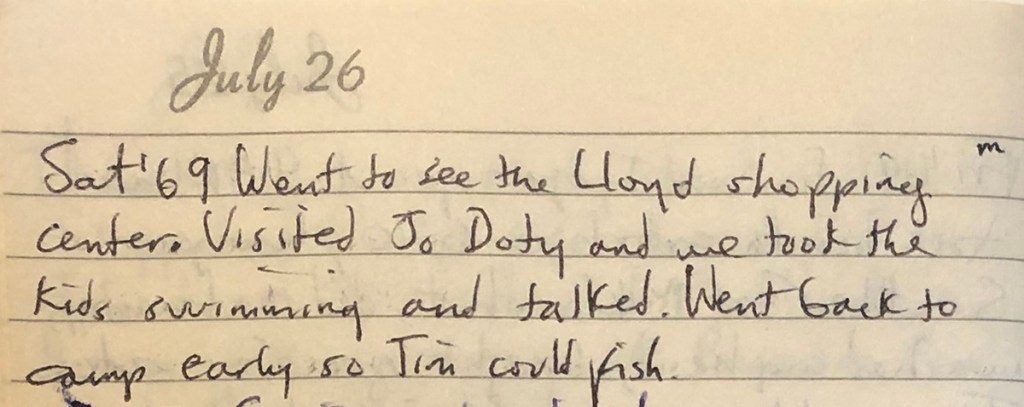 July 26
m
Sat '69 Went to see the Lloyd shopping
center. Visited Jo Doty and we took the
kids swimming and talked. Went back to
camp early so Tim could fish.